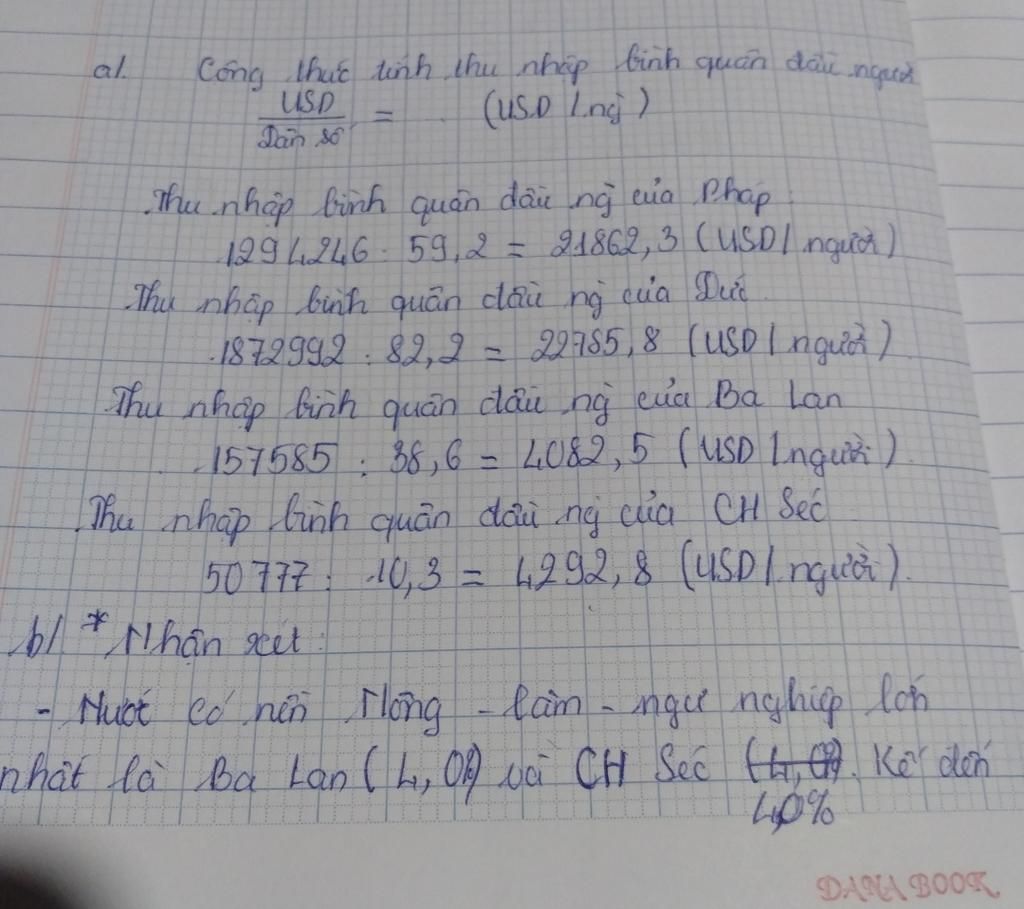 a/. Công thức tính thu nhập bình quân đầu người
USD / Dân số = (USD / ng)
Thu nhập bình quân đầu ng của Pháp:
1294246 : 59,2 = 21862,3 (USD / người)
Thu nhập bình quân đầu ng của Đức.
1872992 : 82,2 = 22785,8 (USD / người)
Thu nhập bình quân đầu ng của Ba Lan
157585 : 38,6 = 4082,5 (USD / người).
Thu nhập bình quân đầu ng của CH Séc
50777 : 10,3 = 4292,8 (USD / người).
b/ * Nhận xét:
- Nước có nền Nông - lâm - ngư nghiệp lớn
nhất là Ba Lan (4,0%) và CH Séc (4,0%). Kế đến
4,0%
DANA BOOK